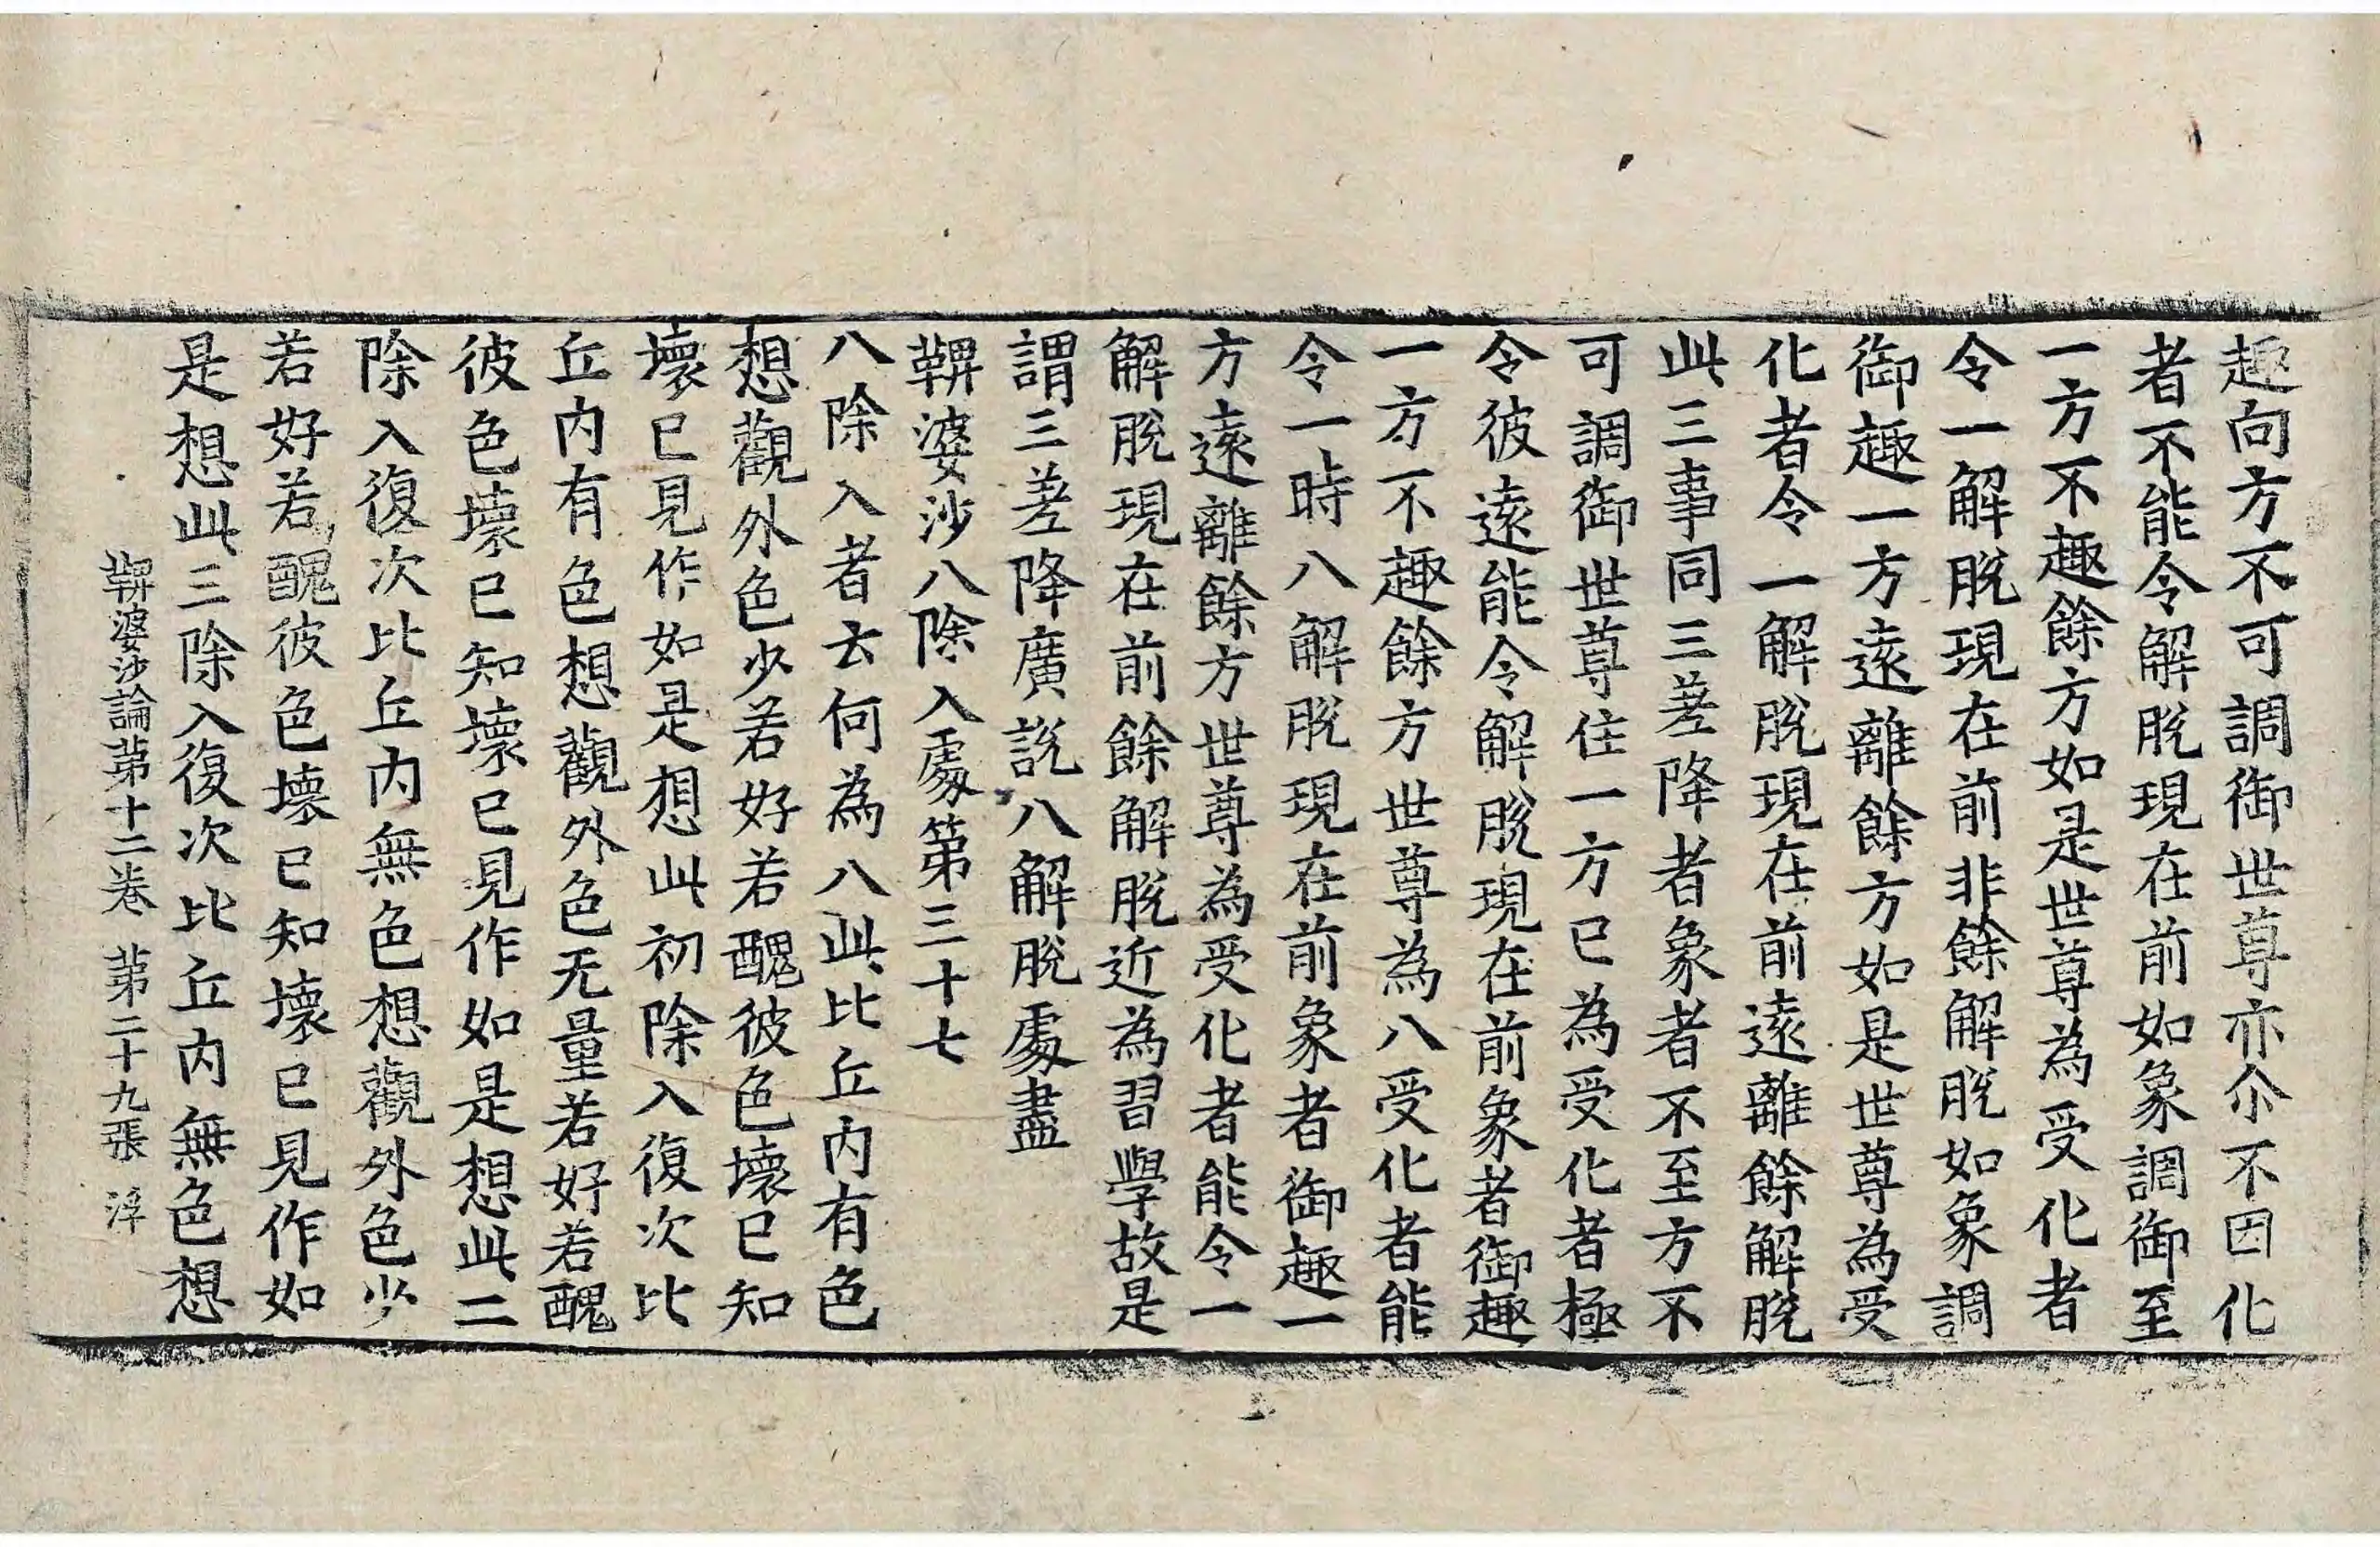 趣向方不可調御世尊亦尒不因化
者不能令解脫現在前如象調御至
一方不趣餘方如是世尊為受化者
令一解脫現在前非餘解脫如象調
御趣一方遠離餘方如是世尊為受
化者令一解脫現在前遠離餘解脫
此三事同三差降者象者不至方不
可調御世尊住一方已為受化者極
令彼遠能令解脫現在前象者御趣
一方不趣餘方世尊為八受化者能
令一時八解脫現在前象者御趣一
方遠離餘方世尊為受化者能令一
解脫現在前餘解脫近為習學故是
謂三差降廣說八解脫處盡
鞞婆沙八除入處第三十七
八除入者云何為八此比丘內有色
想觀外色少若好若醜彼色壞已知
壞已見作如是想此初除入復次比
丘內有色想觀外色无量若好若醜
彼色壞已知壞已見作如是想此二
除入復次比丘內無色想觀外色少
若好若醜彼色壞已知壞已見作如
是想此三除入復次比丘內無色想
鞞婆沙論第十二卷 第二十九張 浮